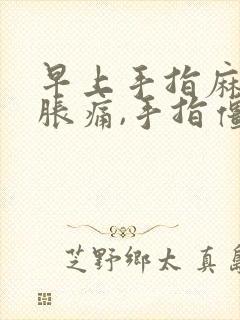 早上手指麻
脹痛,手指僵
芝野鄉太 真島